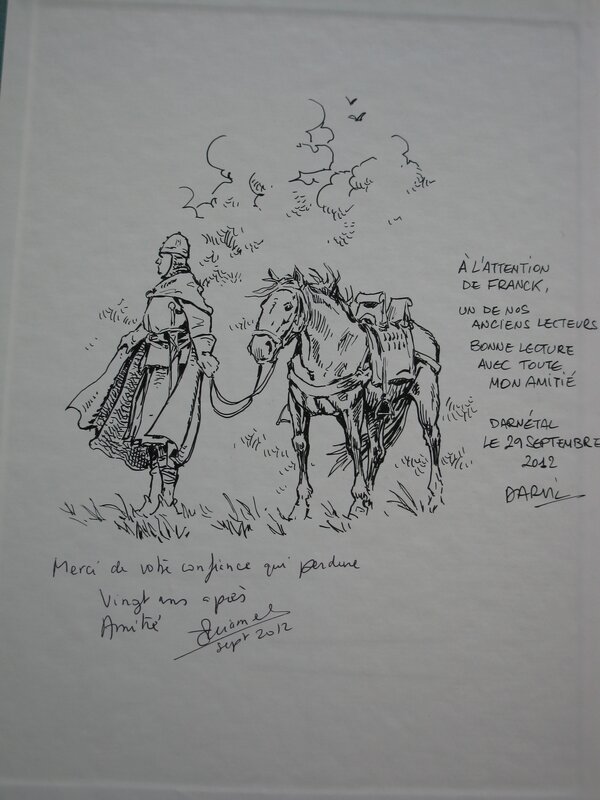 À L'ATTENTION
DE FRANCK,
UN DE NOS
ANCIENS LECTEURS
BONNE LECTURE
AVEC TOUTE
MON AMITIÉ
DARNÉTAL
LE 29 SEPTEMBRE
2012
DARVIL
Merci de votre confiance qui perdure
Vingt ans après
Amitié
sept 2012